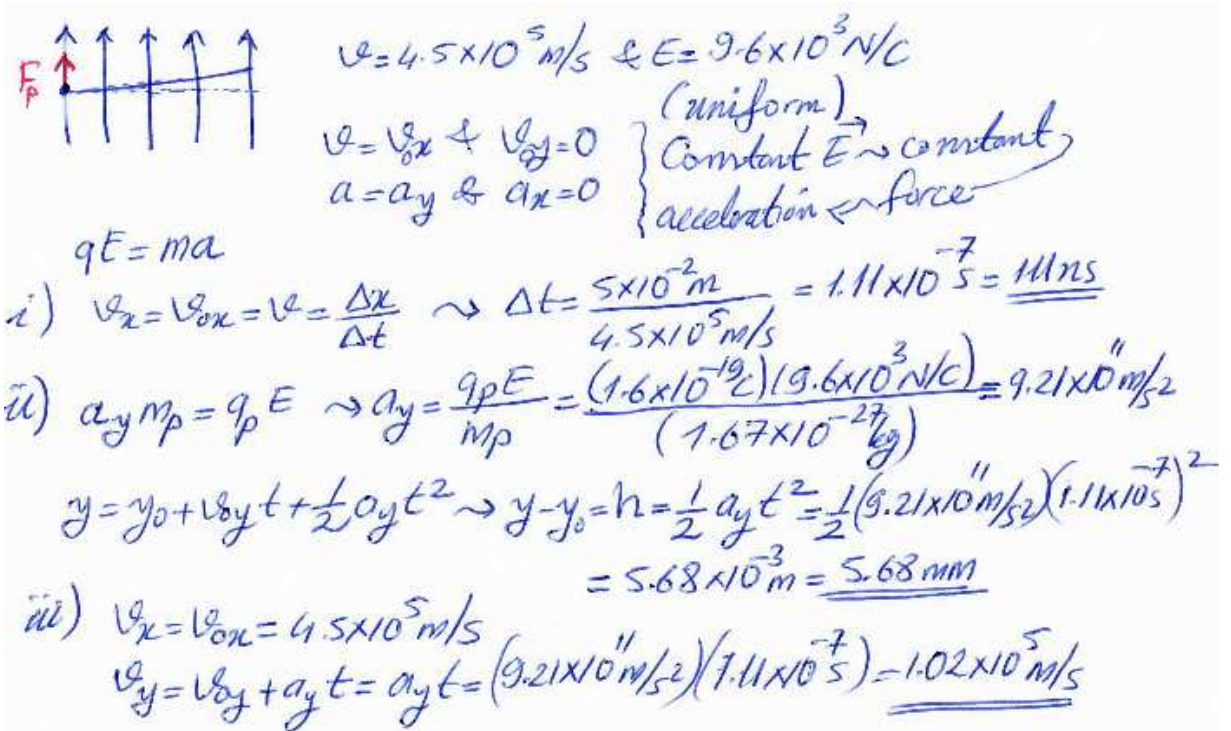 F_p
v = 4.5×10^5 m/s & E = 9.6×10^3 N/C
(uniform)
v = v_ox & v_oy = 0
Constant E⃗ ⇝ constant
a = a_y & a_x = 0
acceleration ⇜ force
qE = ma
i) v_x = v_ox = v = Δx/Δt ⇝ Δt = 5×10^-2 m / 4.5×10^5 m/s = 1.11×10^-7 s = 111 ns
ii) a_y m_p = q_p E ⇝ a_y = q_p E / m_p = (1.6×10^-19 C)(9.6×10^3 N/C) / (1.67×10^-27 kg) = 9.21×10^11 m/s^2
y = y_0 + v_oy t + 1/2 a_y t^2 ⇝ y - y_0 = h = 1/2 a_y t^2 = 1/2 (9.21×10^11 m/s^2)(1.11×10^-7 s)^2
= 5.68×10^-3 m = 5.68 mm
iii) v_x = v_ox = 4.5×10^5 m/s
v_y = v_oy + a_y t = a_y t = (9.21×10^11 m/s^2)(1.11×10^-7 s) = 1.02×10^5 m/s